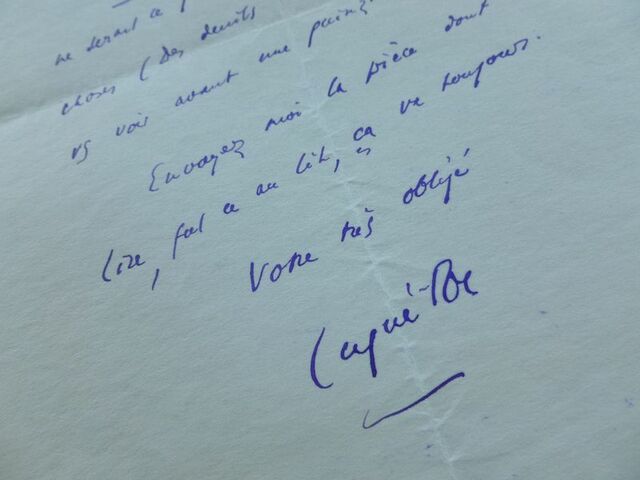 ne serait ce
choses (des
vs voir avant une
Envoyez moi la pièce dont
lire, fut ce au lit, ça va toujours.
Votre très obligé
Lugné-Poe